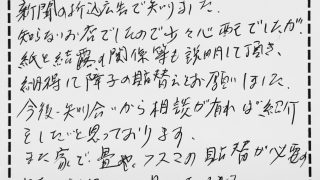 新聞の折込広告で知りました。
知らないお店でしたので少々心配でしたが、
紙と結露の関係等も説明して頂き、
納得して障子の貼替えをお願いしました。
今後、知り合いから相談が有れば紹介
をしたいと思っております。
また家で、畳や、フスマの貼替が必要の